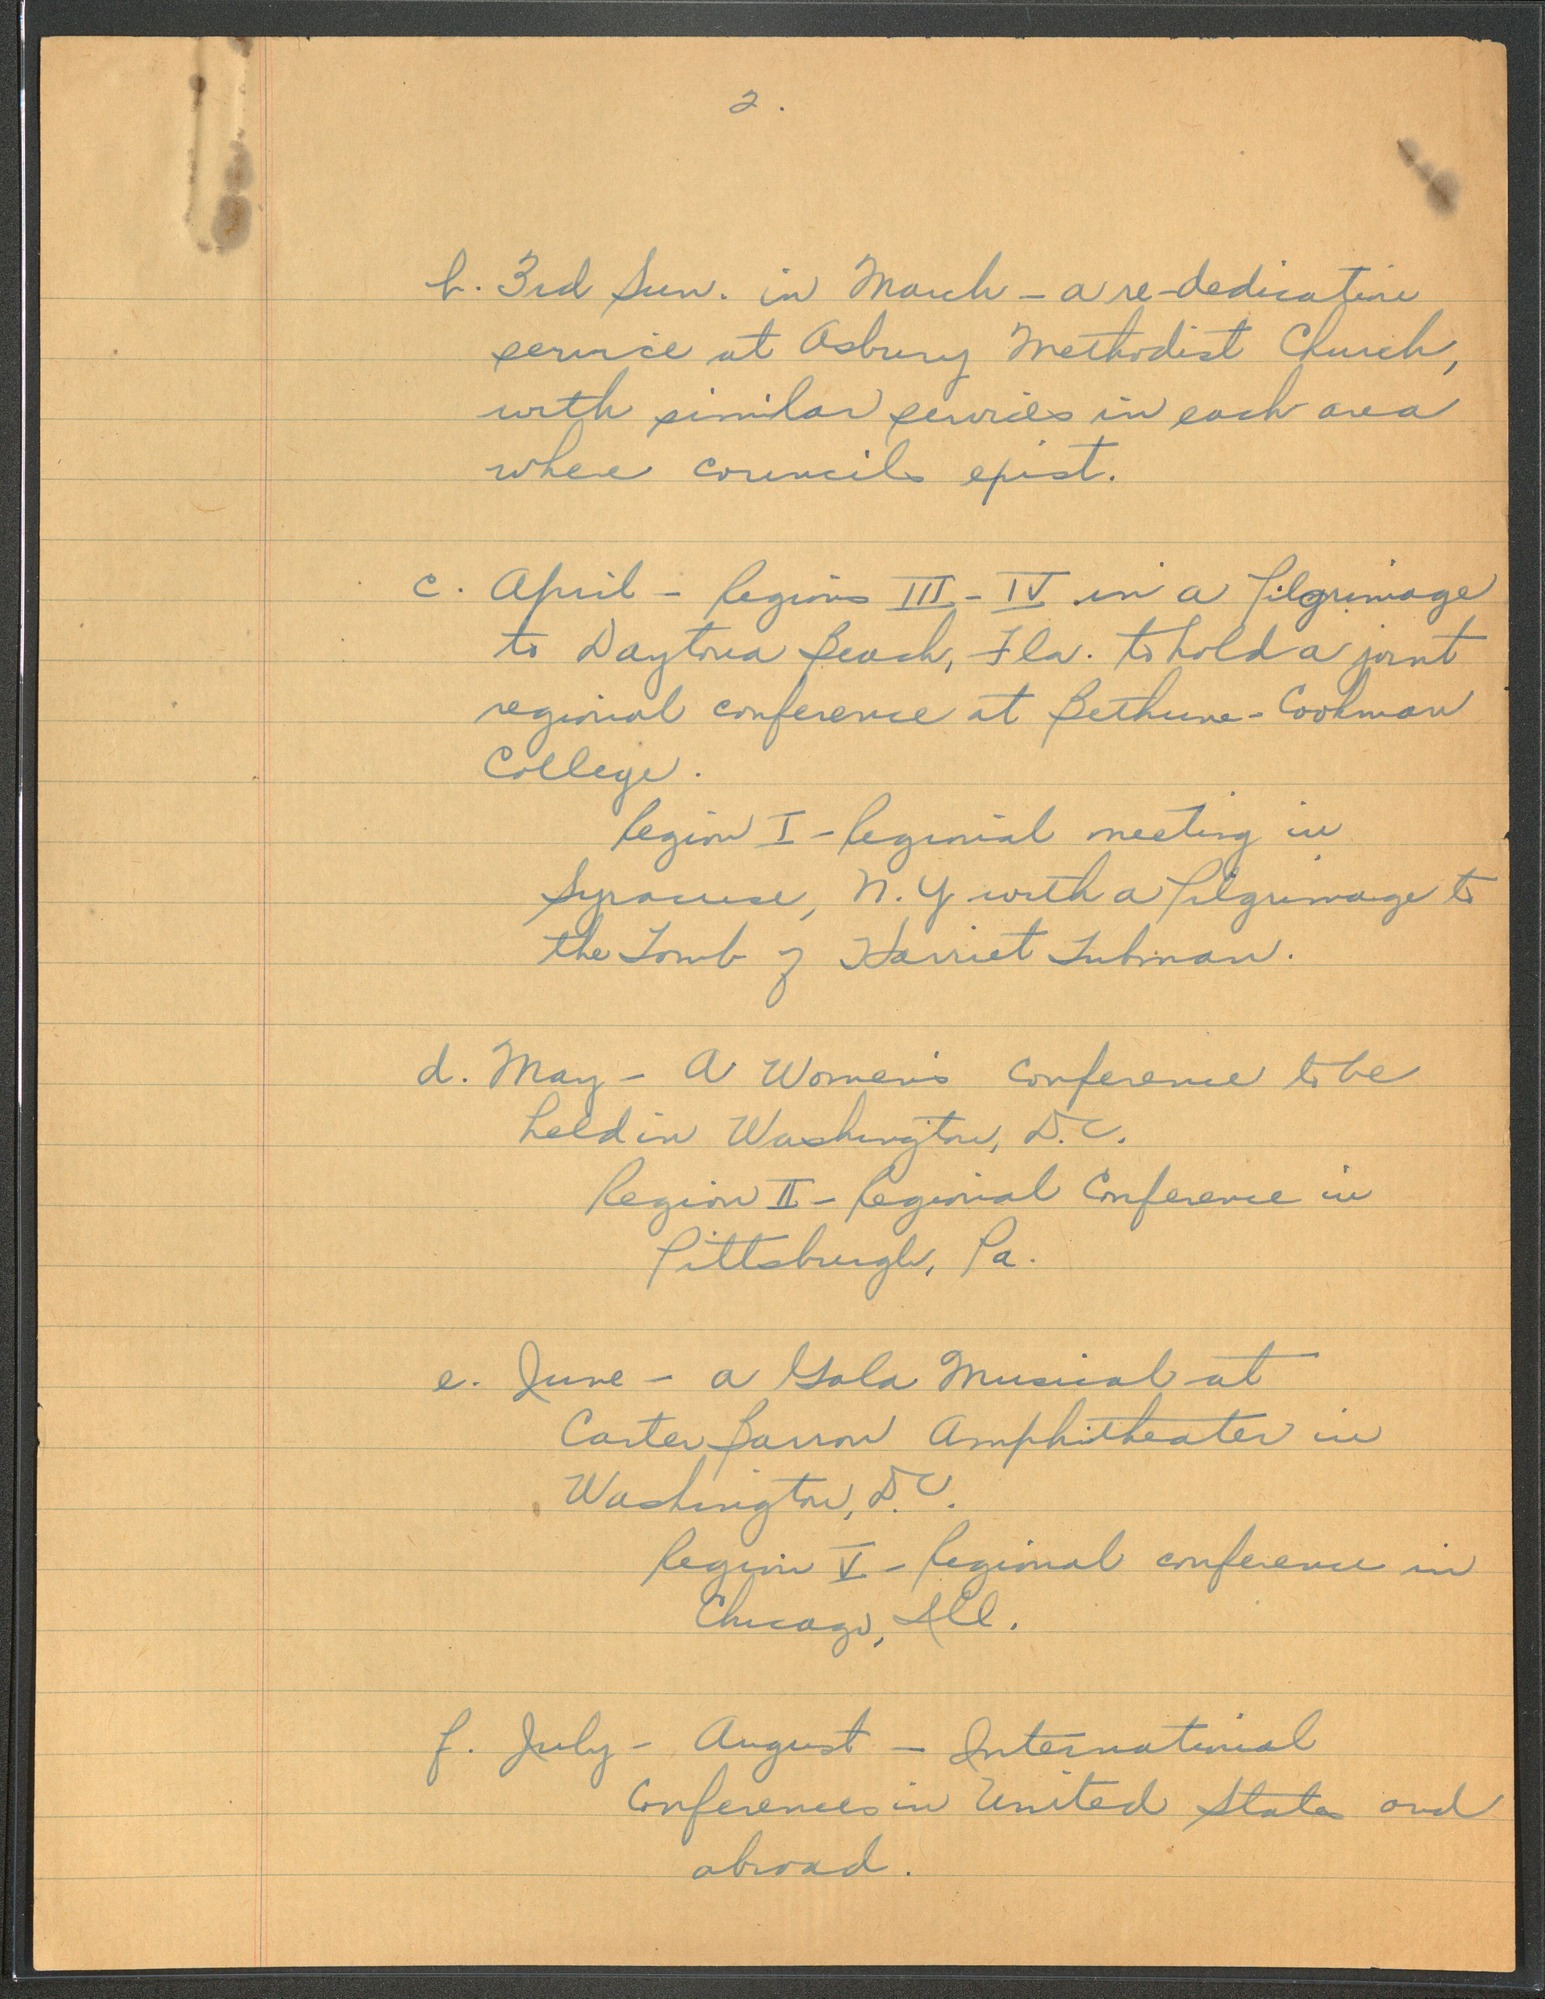 2.
b. 3rd Sun. in March - a re-dedication
service at Asbury Methodist Church,
with similar services in each area
where councils exist.
c. April - Regions III - IV in a Pilgrimage
to Daytona Beach, Fla. to hold a joint
regional conference at Bethune-Cookman
College.
Region I - Regional meeting in
Syracuse, N.Y with a Pilgrimage to
the Tomb of Harriet Tubman.
d. May - A Women's Conference to be
held in Washington, D.C.
Region II - Regional Conference in
Pittsburgh, Pa.
e. June - a Gala Musical at
Carter Barron Amphitheater in
Washington, D.C.
Region V - Regional conference in
Chicago, Ill.
f. July - August - International
Conferences in United States and
abroad.